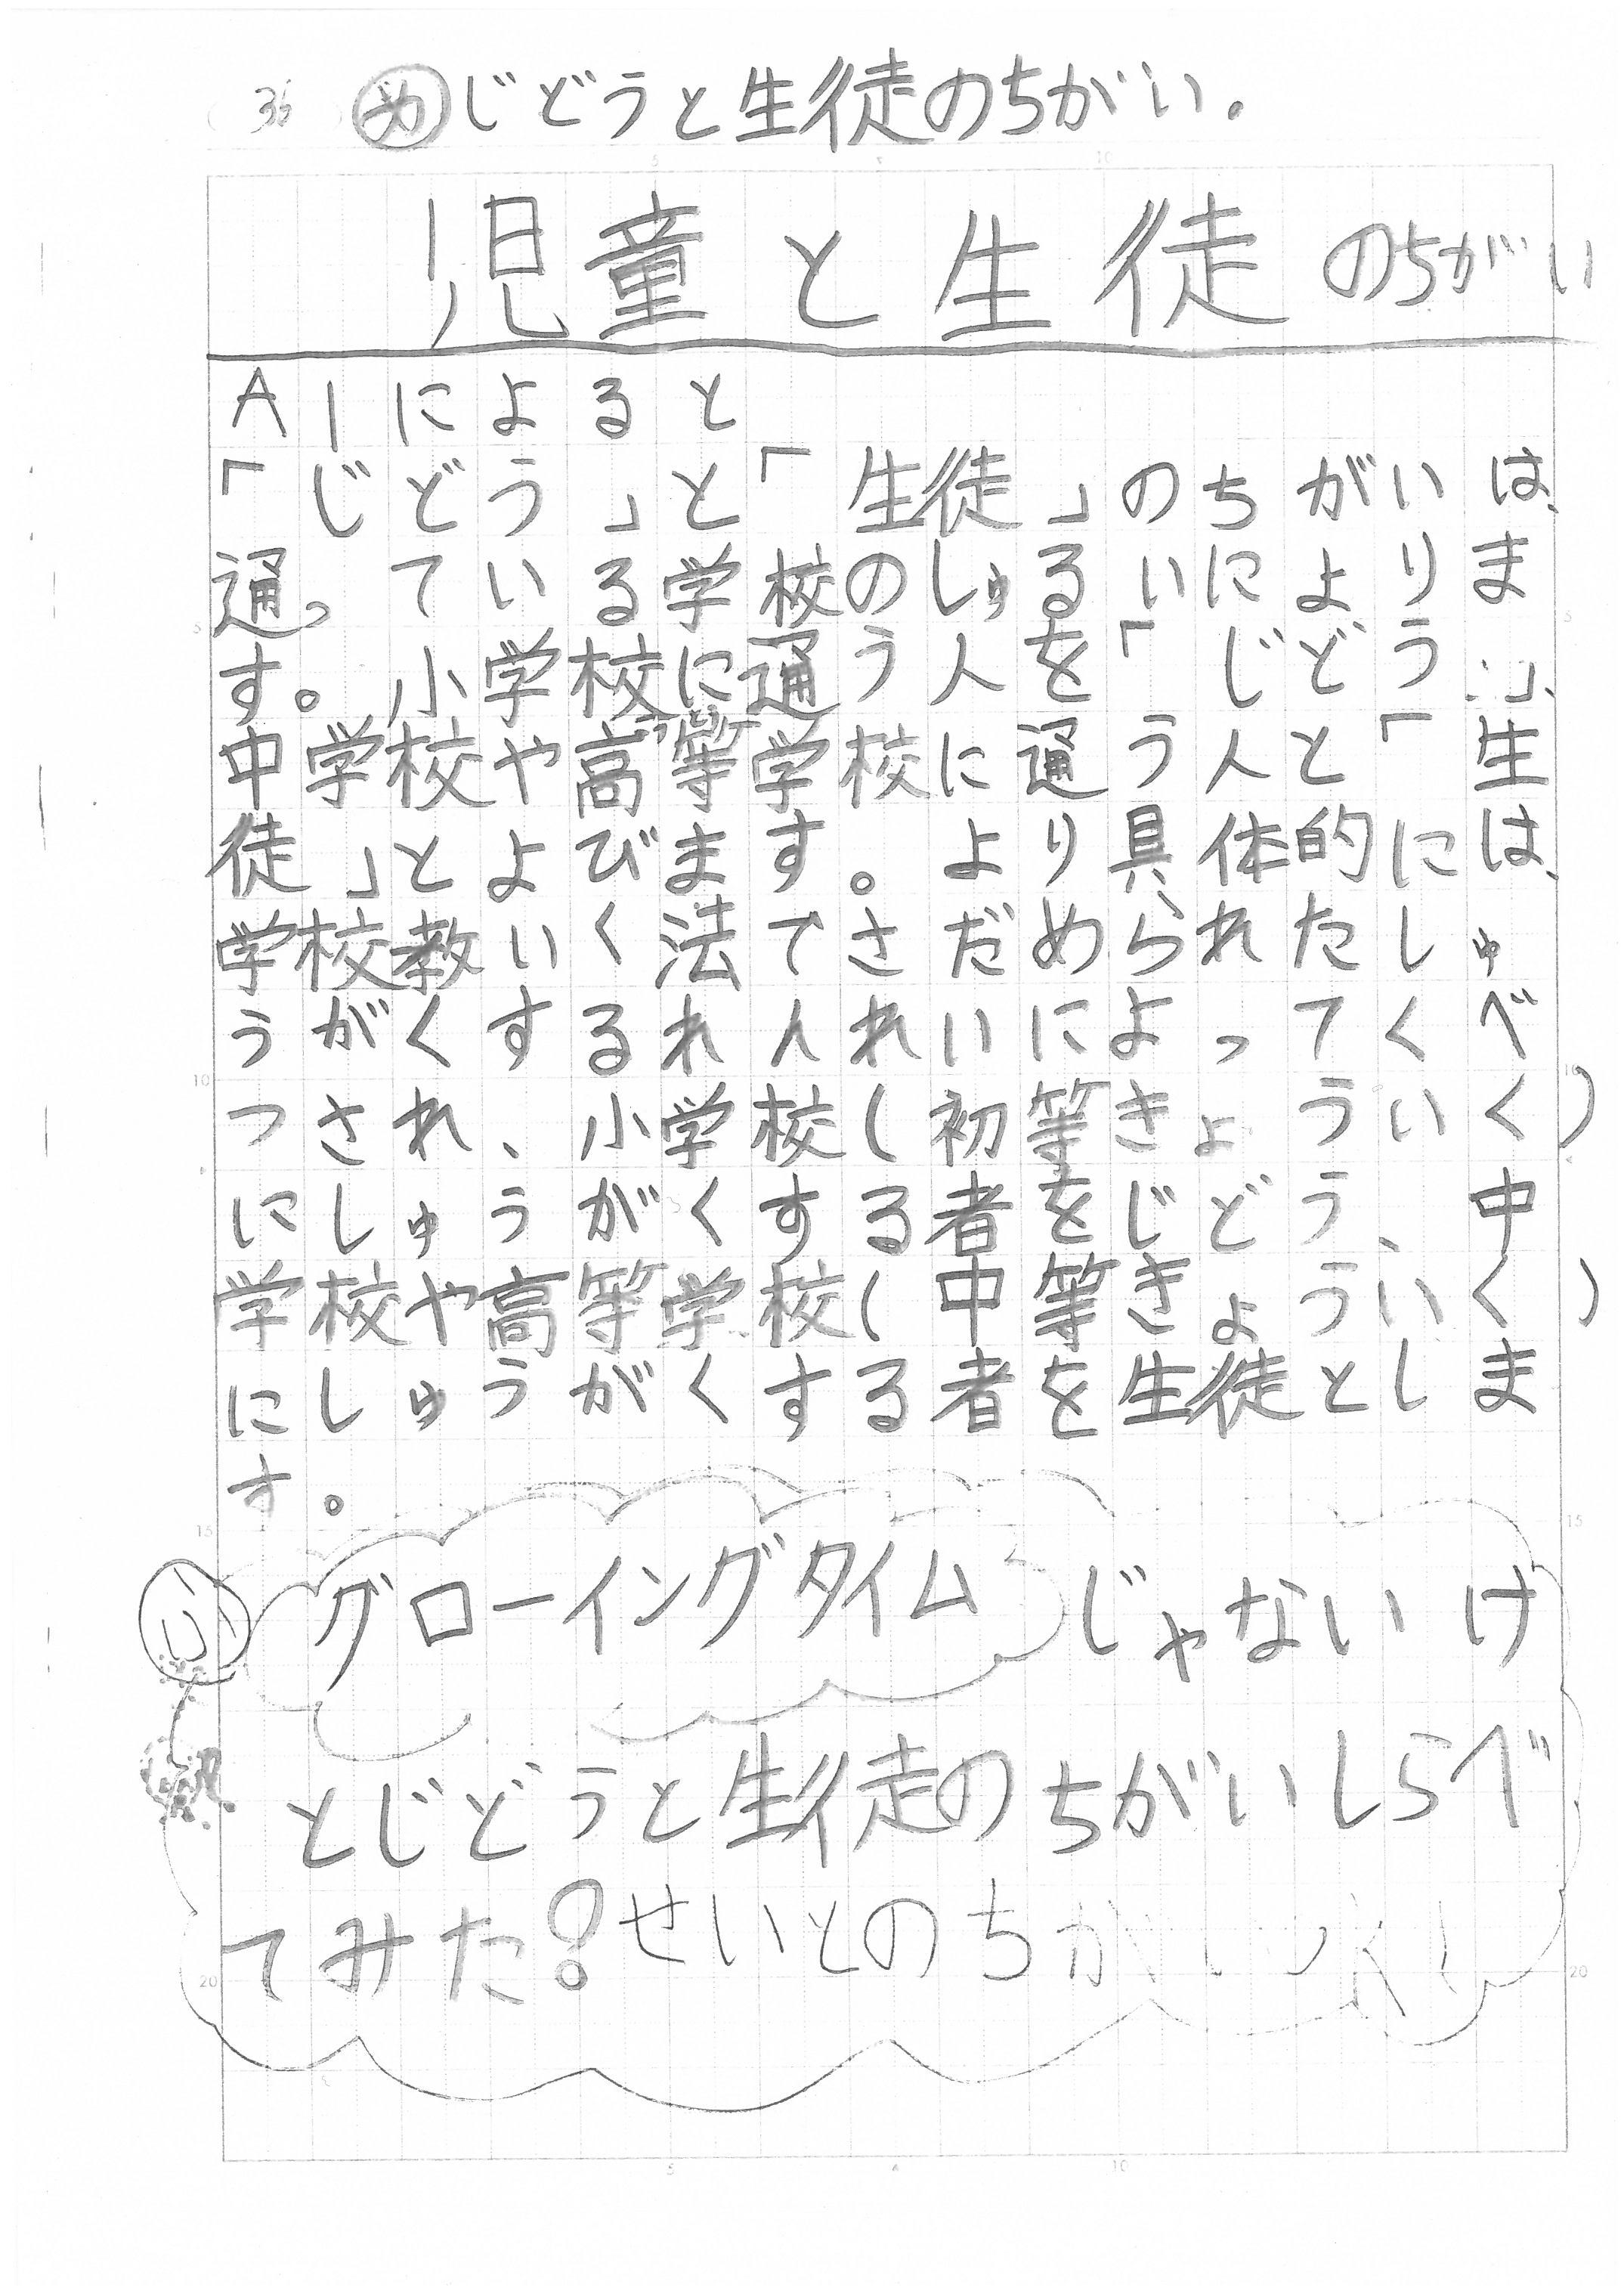 36 め じどうと生徒のちがい。
児童と生徒のちがい
AIによると
「じどう」と「生徒」のちがいは、
通っている学校のしゅるいによりま
す。小学校に通う人を「じどう」、
中学校や高等学校に通う人と「生
徒」とよびます。より具体的には、
学校教いく法でさだめられたしゅ
うがくするれんれいによってくべ
つされ、小学校(初等きょういく)
にしゅうがくする者をじどう、中
学校や高等学校(中等きょういく)
にしゅうがくする者を生徒としま
す。
グローイングタイムじゃないけ
とじどうと生徒のちがいしらべ
てみた!せいとのちが